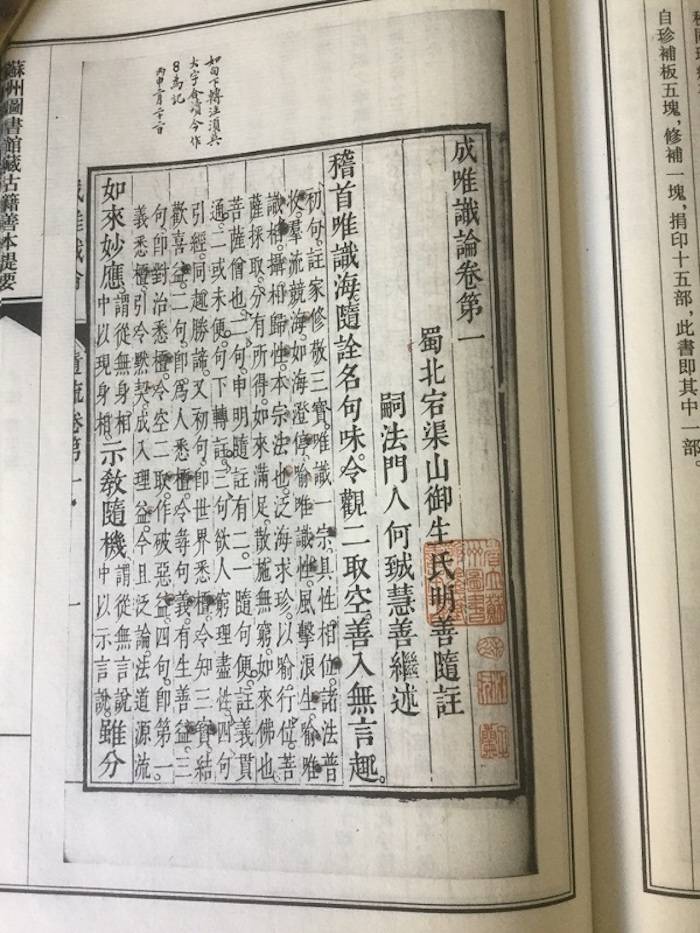 自珍補板五塊，修補一塊，捐印十五部，此書即其中一部。
如句下轉注須具
大字會頌今作
8爲記
成唯識論卷第一
蜀北宕渠山御生氏明善隨註
嗣法門人何慧善繼述
稽首唯識海隨詮名句味。令觀二取空。善入無言趣。
初句。註家修敬三寶。唯識一宗。具性相位。諸法普
收。羣流競海。如海澄停。喻唯識性。風擊浪生。喻唯
識相。攝相歸性。本宗法也。泛海求珍。以喻行位。菩
薩採取。分有所得。如來滿足。散施無窮。如來佛也
菩薩僧也。二句。申明隨註有二。一隨句便。註義貫
通。二或未便。句下轉註。三句欲人窮理盡性。四句
引經。同趣勝諦。又初句。即世界悉檀。令知三寶結
歡喜益。二句。即爲人悉檀。令尋句義。有生善益。三
句。即對治悉檀。令空二取。作破惡益。四句。即第一
義悉檀。引令黙契。成入理益。今且泛論法道源流
如來妙應。謂從無身相中以現身相。示教隨機。謂從無言說中以示言說。雖分
卷第一
一
蘇州圖書館藏古籍善本提要